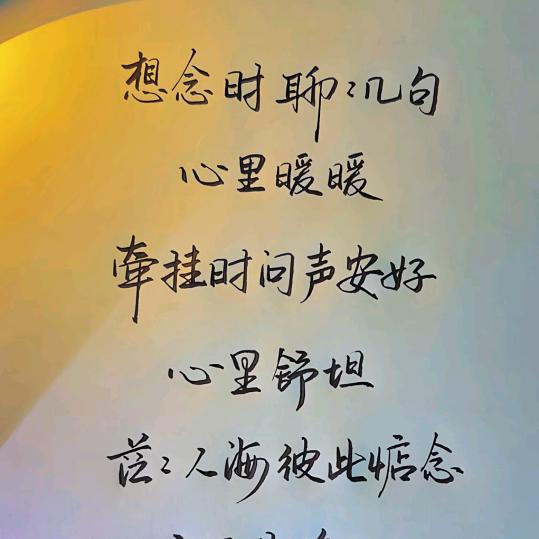 想念时聊聊几句
心里暖暖
牵挂时问声安好
心里舒坦
茫茫人海彼此惦念